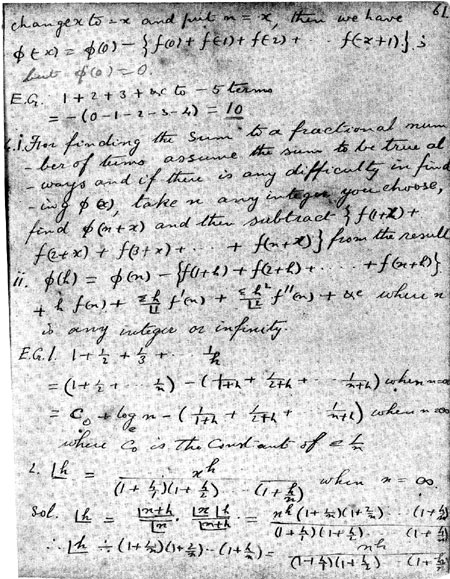 61
change x to -x and put n = x, then we have
φ(-x) = φ(0) - {f(0) + f(-1) + f(-2) + ·· f(-x+1)};
but φ(0) = 0.
E.G. 1 + 2 + 3 + &c to -5 terms
= -(0 -1 -2 -3 -4) = 10
i. For finding the sum to a fractional num
-ber of terms assume the sum to be true al
-ways and if there is any difficulty in find
-ing φ(x), take n any integer you choose,
find φ(n+x) and then subtract {f(1+x) +
f(2+x) + f(3+x) + ··· + f(n+x)} from the result
ii. φ(h) = φ(n) - {f(1+h) + f(2+h) + ···· + f(n+h)}
+ h f(n) + f'(n) + f''(n) + &c where n
is any integer or infinity.
E.G. 1. 1 + 1/2 + 1/3 + ··· 1/h
= (1 + 1/2 + ···· 1/n) - (1/(1+h) + 1/(2+h) + ··· 1/(n+h)) when n=∞
= C₀ + logₑ n - (1/(1+h) + 1/(2+h) + ··· 1/(n+h)) when n=∞
where C₀ is the Constant of Σ 1/n
2. |h = / (1 + h/1)(1 + h/2) ··· (1 + h/n) when n = ∞.
Sol. |h = |n+h / |n · |n |h / |n+h = n^h (1 + 1/n)(1 + 2/n) ··· (1 + h/n) / (1 + h/1)(1 + h/2) ··· (1 + h/n)
∴ |h ÷ (1 + 1/n)(1 + 2/n) ·· (1 + h/n) = n^h / (1 + h/1)(1 + h/2) ··· (1 + h/n)